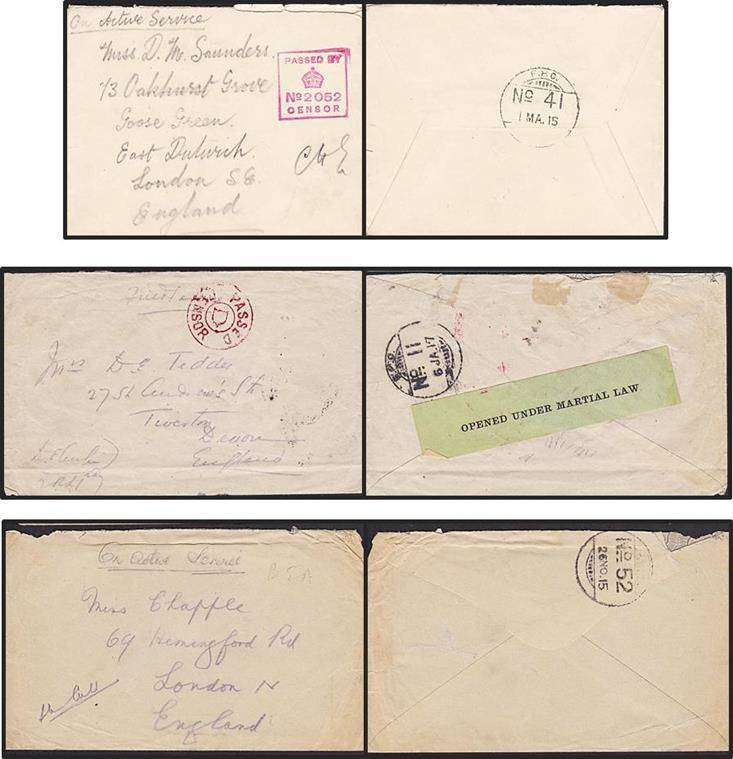 On Active Service
Miss D. M. Saunders.
73 Oakhurst Grove
Goose Green.
East Dulwich.
London S.E.
England
PASSED BY
No 2052
CENSOR
F.P.O.
No 41
1 MA.15
PASSED
CENSOR
D
Mrs D E Tedder
27 St Andrew's St
Tiverton
Devon
England
F.P.O.
No. 11
6 JA.17
OPENED UNDER MARTIAL LAW
On Active Service
Miss Chapple
69 Hemingford Rd
London N
England
No. 52
26 NO.15